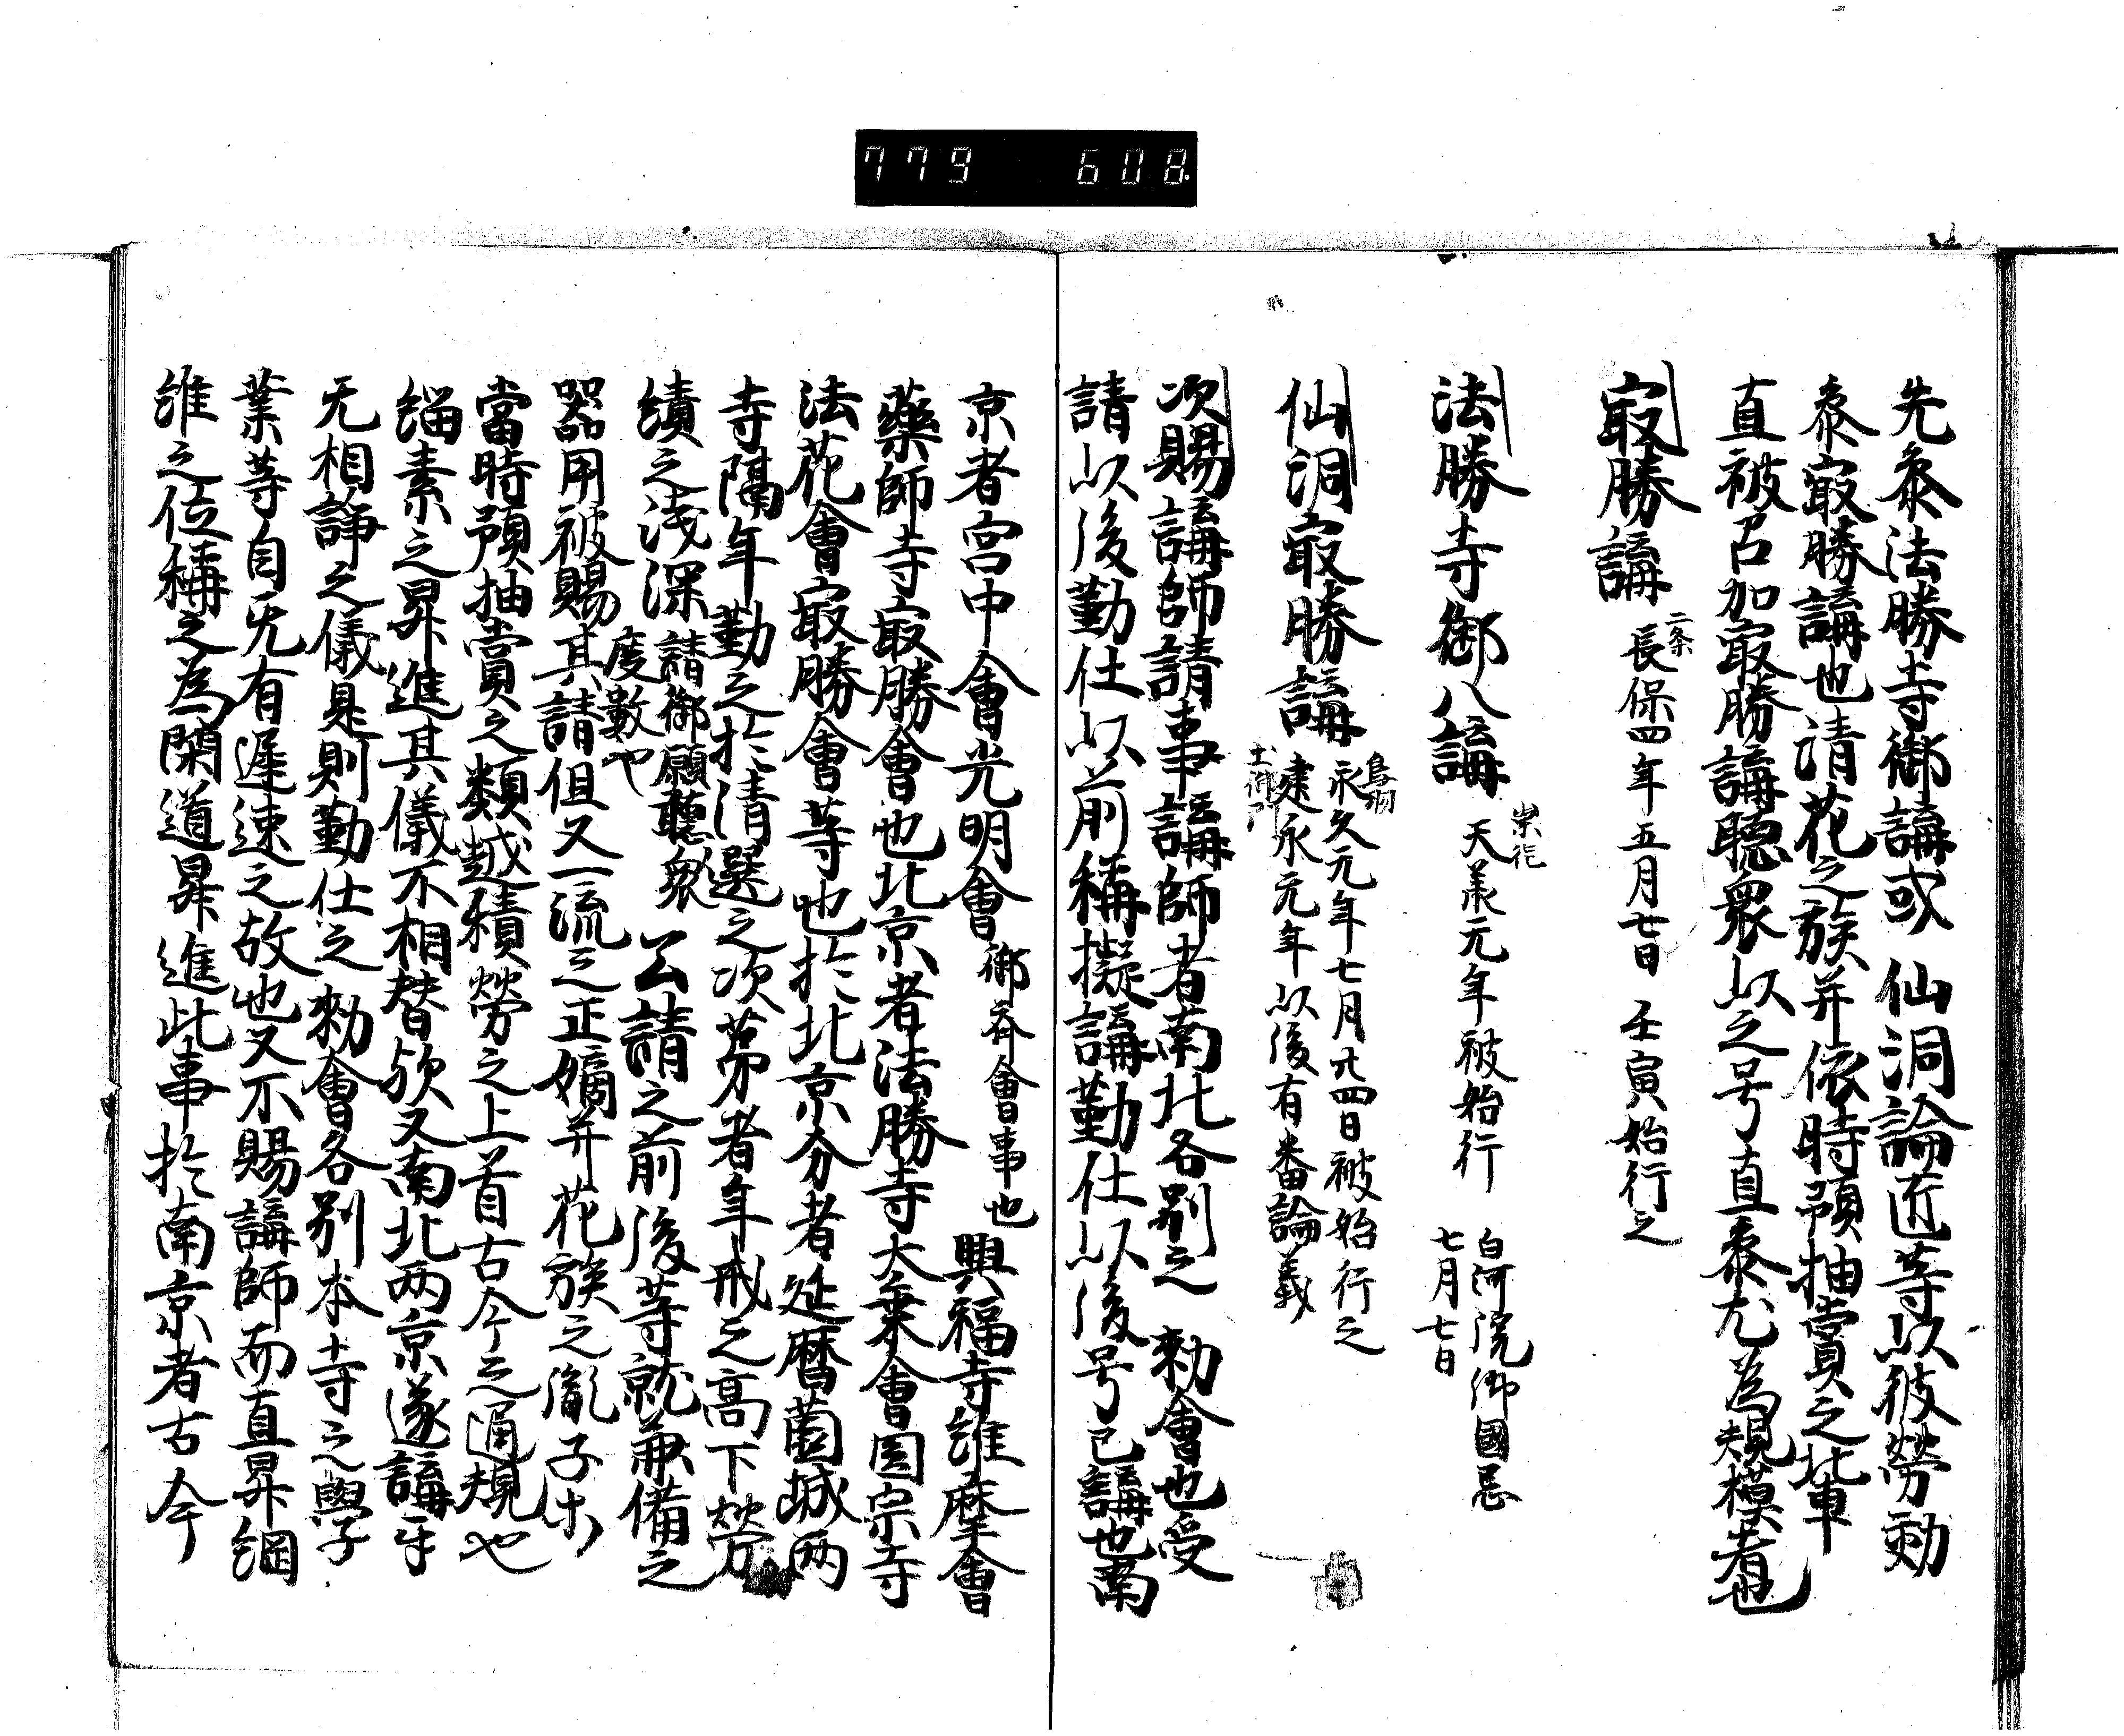 779 608
先参法勝寺御講或 仙洞論匠等以彼労効
参冣勝講也清花之族并依時預抽賞之輩
直被召加冣勝講聴衆以之号直参尤為規模者也
冣勝講 二条 長保四年五月七日 壬寅始行之
法勝寺御八講 崇徳 天承元年被始行 白河院御國忌
七月七日
仙洞冣勝講 鳥羽 永久元年七月廿四日被始行之
土御門 建永元年以後有番論義
次賜講師請事講師者南北各別之 勅會也受
請以後勤仕以前稱擬講勤仕以後号已講也南
京者宮中會光明會 御斉會事也 興福寺維摩會
藥師寺冣勝會也北京者法勝寺大乗會圓宗寺
法花會冣勝會等也於北京分者延暦薗城两
寺隔年勤之於清選之次第者年戒之高下労
績之浅深 請御願聴衆 公請之前後等就兼備之
度數也
器用被賜其請但又一流之正嫡并花族之胤子等
當時預抽賞之類越積労之上首古今之通規也
緇素之昇進其儀不相替欤又南北两京遂講年
无相諍之儀是則勤仕之 勅會各別本寺之學
業等自旡有遅速之故也又不賜講師而直昇綱
維之位稱之為閑道昇進此事於南京者古今